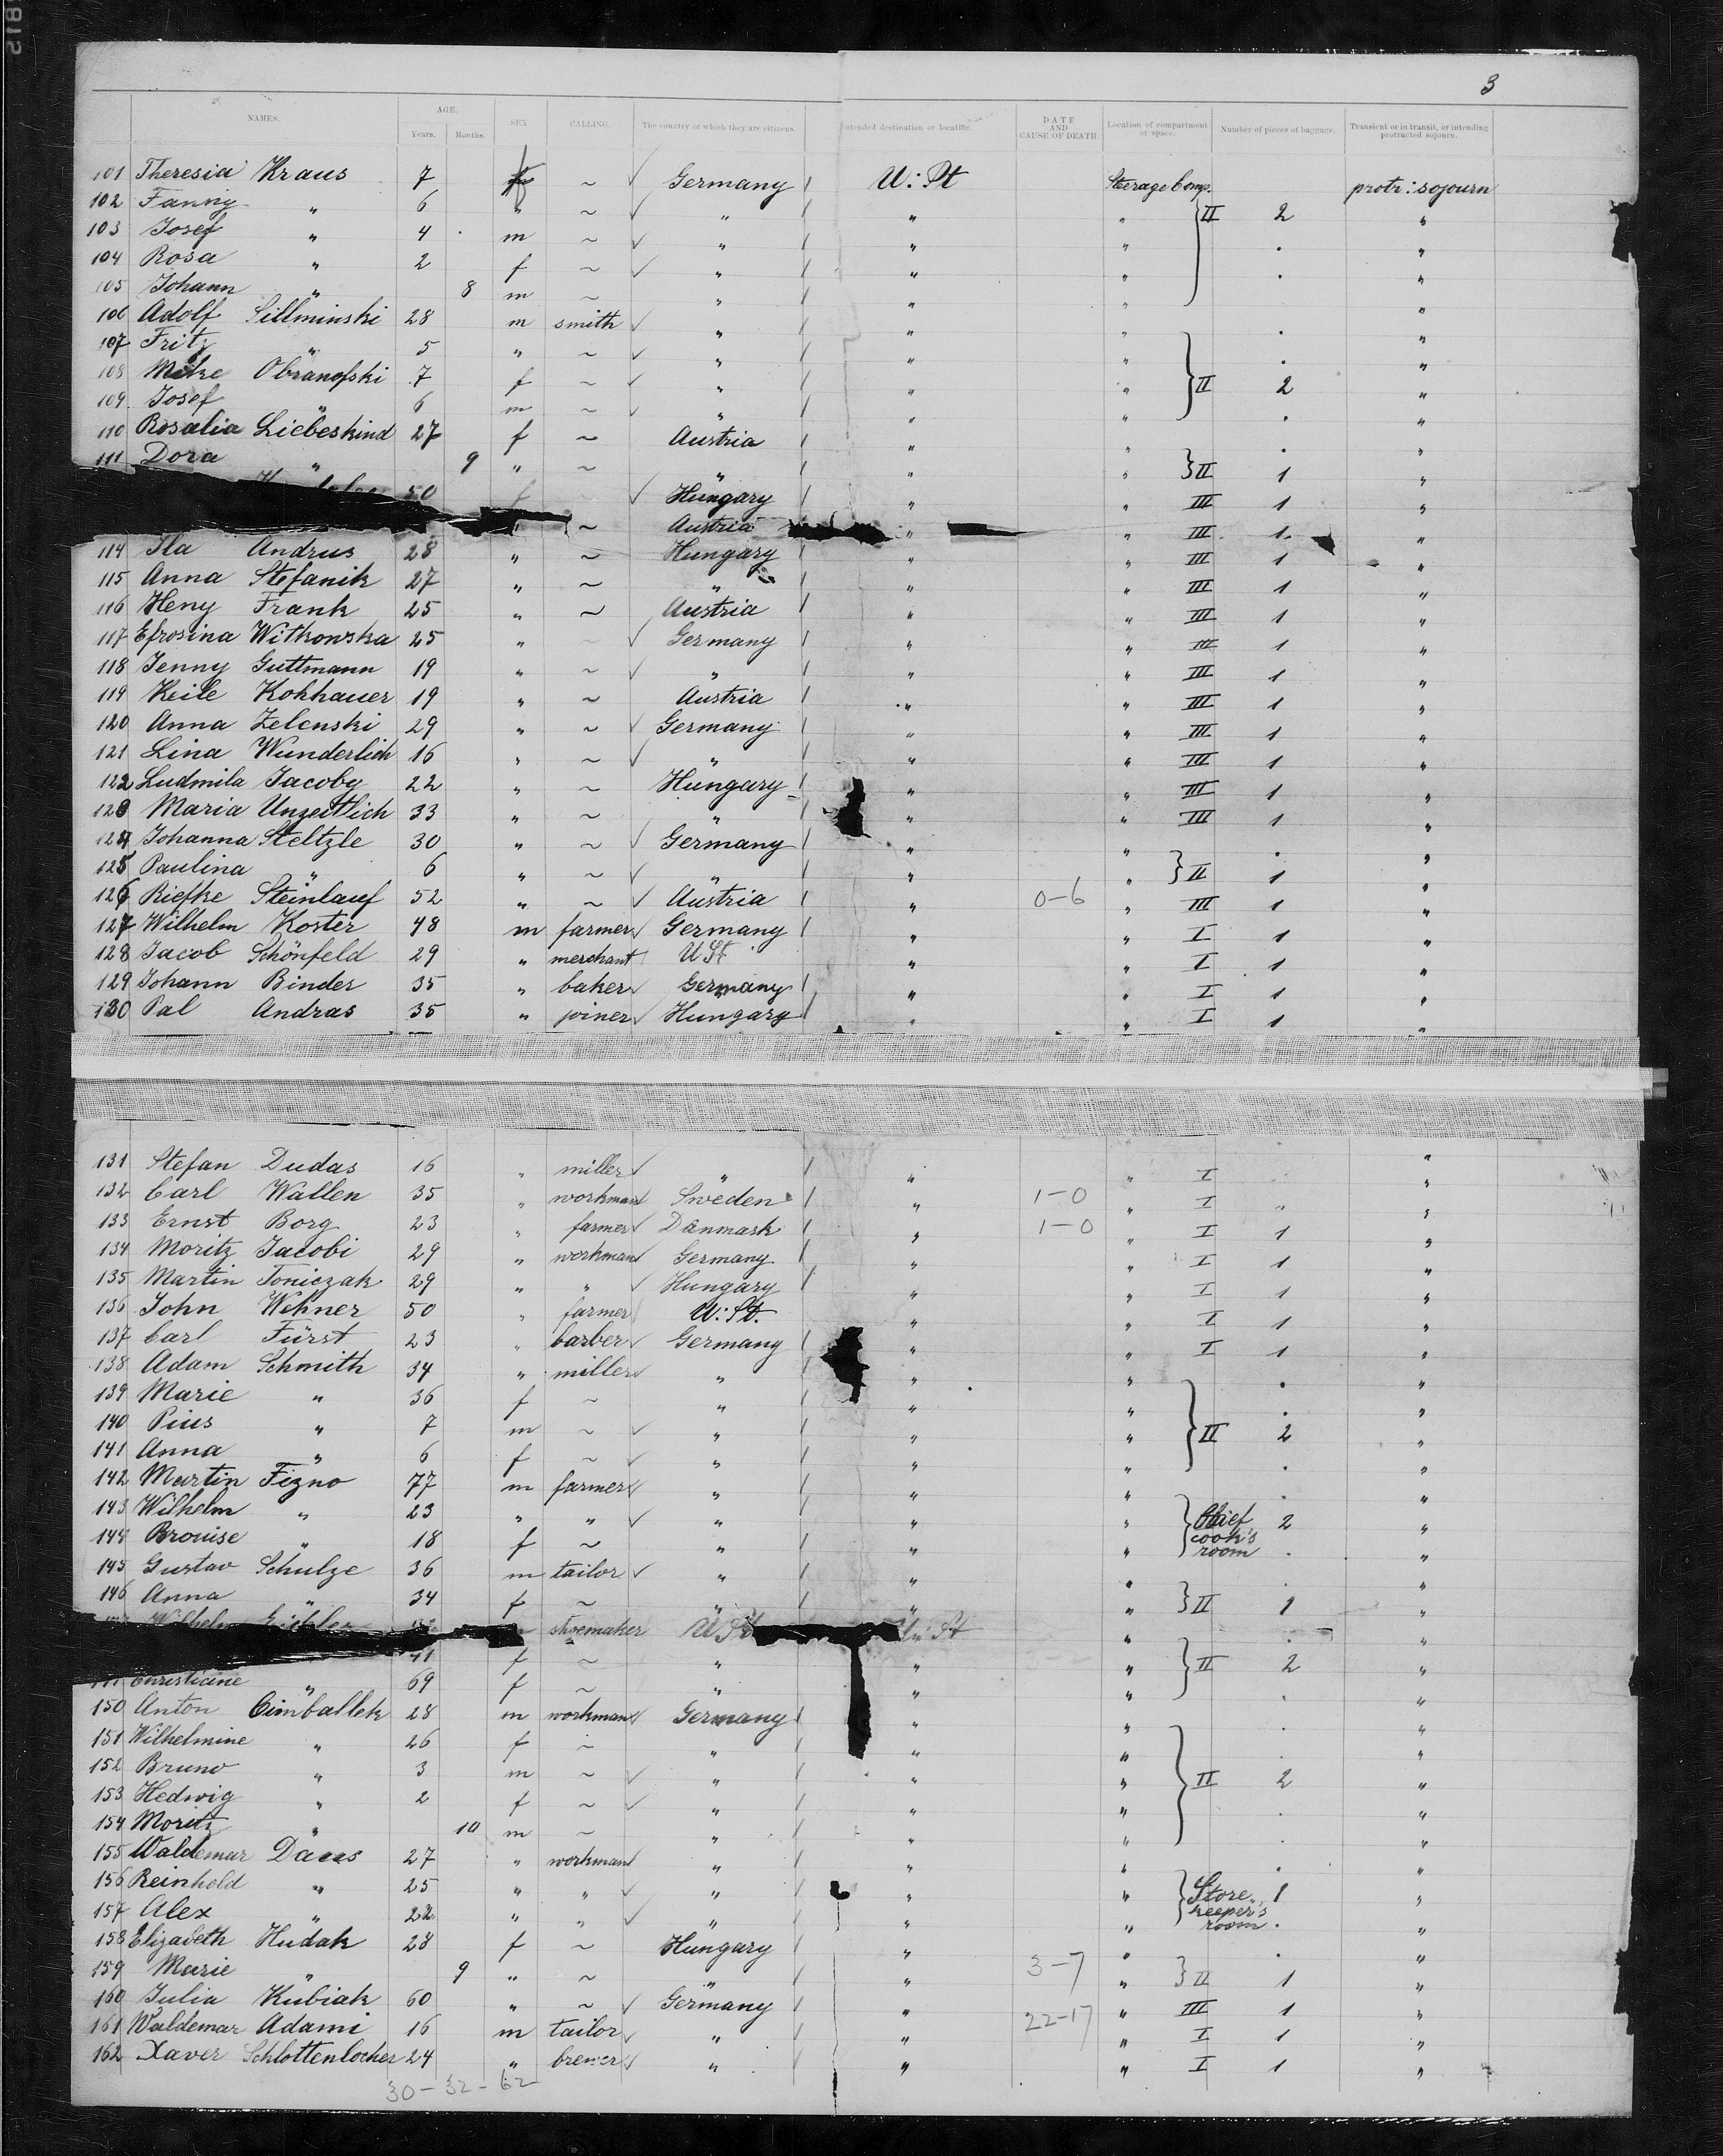 3
NAMES. AGE. Years. Months. SEX CALLING. The country of which they are citizens. Intended destination or location. DATE AND CAUSE OF DEATH Location of compartment or space. Number of pieces of baggage. Transient or in transit, or intending protracted sojourn.
101 Theresia Kraus 7 f ~ ✓ Germany / U: St Steerage Comp. protr: sojourn
102 Fanny " 6 " ~ ✓ " / " " II 2 "
103 Josef " 4 m ~ ✓ " / " " . "
104 Rosa " 2 f ~ ✓ " / " " . "
105 Johann " 8 m ~ " / " " "
106 Adolf Sillminski 28 m smith ✓ " / " " . "
107 Fritz " 5 " ~ ✓ " / " " . "
108 Meike Obranofski 7 f ~ ✓ " / " " II 2 "
109 Josef " 6 m ~ ✓ " / " " . "
110 Rosalia Liebeskind 27 f ~ Austria / " " . "
111 Dora " 9 " ~ " / " " II 1 "
50 f ✓ Hungary / " " III 1 "
~ Austria " " III 1 "
114 Ila Andrus 28 " ~ Hungary / " " III 1 "
115 Anna Stefanik 27 " ~ " / " " III 1 "
116 Heny Frank 25 " ~ Austria / " " III 1 "
117 Efrosina Witkowska 25 " ~ ✓ Germany / " " III 1 "
118 Jenny Guttmann 19 " ~ ✓ " / " " III 1 "
119 Keile Kohhauer 19 " ~ Austria / " " III 1 "
120 Anna Zelenski 29 " ~ ✓ Germany / " " III 1 "
121 Lina Wunderlich 16 " ~ ✓ " / " " III 1 "
122 Ludmila Jacoby 22 " ~ Hungary / " " III 1 "
123 Maria Unzeitlich 33 " ~ " / " " III 1 "
124 Johanna Steltzle 30 " ~ ✓ Germany / " " . "
125 Paulina " 6 " ~ ✓ " / " " II 1 "
126 Riefke Steinlauf 52 " ~ ✓ Austria / " 0-6 " III 1 "
127 Wilhelm Koster 48 m farmer ✓ Germany / " " I 1 "
128 Jacob Schönfeld 29 " merchant U St " " I 1 "
129 Johann Binder 35 " baker ✓ Germany / " " I 1 "
130 Pal Andras 35 " joiner ✓ Hungary / " " I 1 "
131 Stefan Dudas 16 " miller ✓ " / " " I "
132 Carl Wallen 35 " workman ✓ Sweden / " 1-0 " I " "
133 Ernst Borg 23 " farmer ✓ Danmark / " 1-0 " I 1 "
134 Moritz Jacobi 29 " workman ✓ Germany / " " I 1 "
135 Martin Toniczak 29 " " ✓ Hungary / " " I 1 "
136 John Wehner 50 " farmer U: St. " " I 1 "
137 Carl Fürst 23 " barber ✓ Germany / " " I 1 "
138 Adam Schmith 34 " miller ✓ " / " " . "
139 Marie " 36 f ~ " / " " . "
140 Pius " 7 m ~ ✓ " / " " II 2 "
141 Anna " 6 f ~ ✓ " / " " . "
142 Martin Fizno 77 m farmer ✓ " / " " . "
143 Wilhelm " 23 " " ✓ " / " " Chief cook's room 2 "
144 Brouise " 18 f ~ " / " " . "
145 Gustav Schulze 36 m tailor ✓ " / " " . "
146 Anna " 34 f ~ " / " " II 1 "
Wilhelm shoemaker U St U: St " . "
41 f ~ " " " II 2 "
Christiane " 69 f ~ " " " . "
150 Anton Cimballek 28 m workman ✓ Germany / " " . "
151 Wilhelmine " 26 f ~ " / " " . "
152 Bruno " 3 m ~ ✓ " / " " II 2 "
153 Hedwig " 2 f ~ ✓ " / " " . "
154 Moritz " 10 m ~ " / " " . "
155 Waldemar Daus 27 " workman " / " " . "
156 Reinhold " 25 " " ✓ " / " " Store keeper's room 1 "
157 Alex " 22 " " ✓ " / " " . "
158 Elizabeth Hudak 28 f ~ Hungary / " " . "
159 Marie " 9 " ~ " / " 3-7 " II 1 "
160 Julia Kubiak 60 " ~ ✓ Germany / " " III 1 "
161 Waldemar Adami 16 m tailor ✓ " / " 22-17 " I 1 "
162 Xaver Schlottenlocher 24 " brewer ✓ " / " " I 1 "
30-32-62